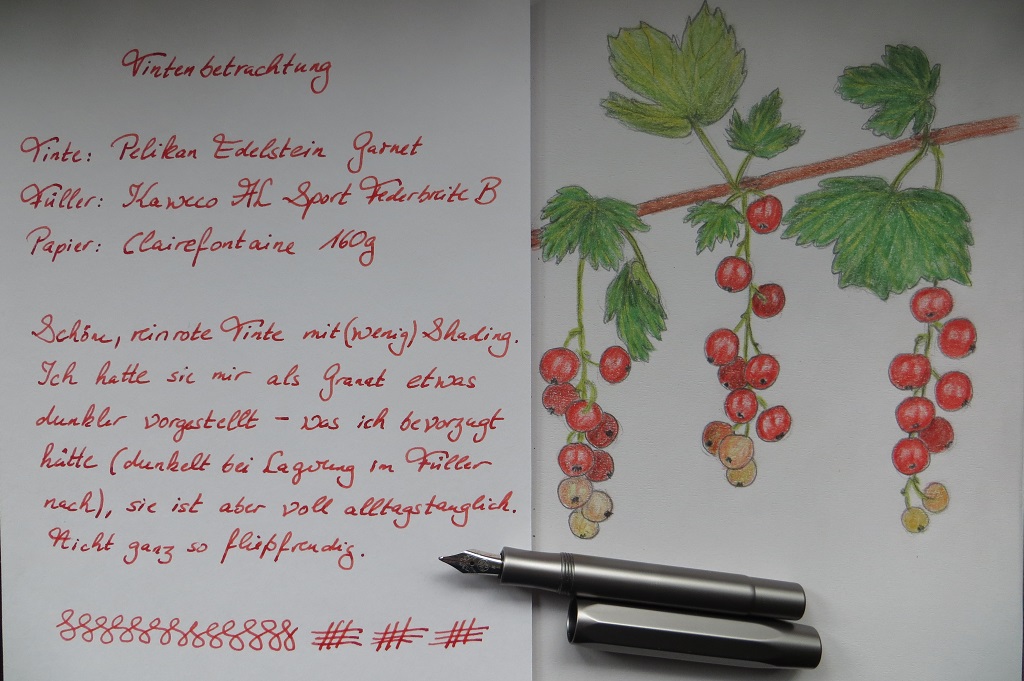 Tintenbetrachtung
Tinte: Pelikan Edelstein Garnet
Füller: Kaweco AL Sport Federbreite B
Papier: Clairefontaine 160g
Schöne, reinrote Tinte mit (wenig) Shading.
Ich hatte sie mir als Granat etwas
dunkler vorgestellt – was ich bevorzugt
hätte (dunkelt bei Lagerung im Füller
nach), sie ist aber voll alltagstauglich.
Nicht ganz so fließfreudig.